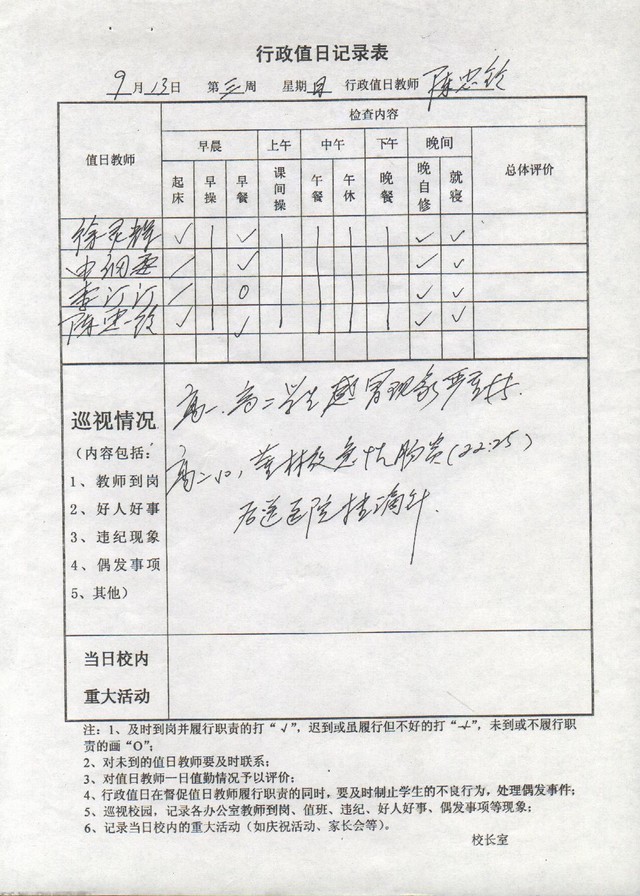 行政值日记录表
9月13日 第三周 星期日 行政值日教师 陈忠铃
检查内容
值日教师 早晨 上午 中午 下午 晚间 总体评价
起床 早操 早餐 课间操 午餐 午休 晚餐 晚自修 就寝
✓ | ✓ | | | | ✓ ✓
✓ | ✓ | | | | ✓ ✓
| O | | | | ✓ ✓
陈忠铃 ✓ | ✓ | | | | ✓ ✓
巡视情况
(内容包括:
1、教师到岗
2、好人好事
3、违纪现象
4、偶发事项
5、其他)
高一、高二学生感冒现象严重
高二10, 急性肠炎(22:25)
后送医院挂滴针.
当日校内
重大活动
注:1、及时到岗并履行职责的打“√”,迟到或虽履行但不好的打“ ”,未到或不履行职
责的画“O”;
2、对未到的值日教师要及时联系;
3、对值日教师一日值勤情况予以评价;
4、行政值日在督促值日教师履行职责的同时,要及时制止学生的不良行为,处理偶发事件;
5、巡视校园,记录各办公室教师到岗、值班、违纪、好人好事、偶发事项等现象;
6、记录当日校内的重大活动(如庆祝活动、家长会等)。
校长室